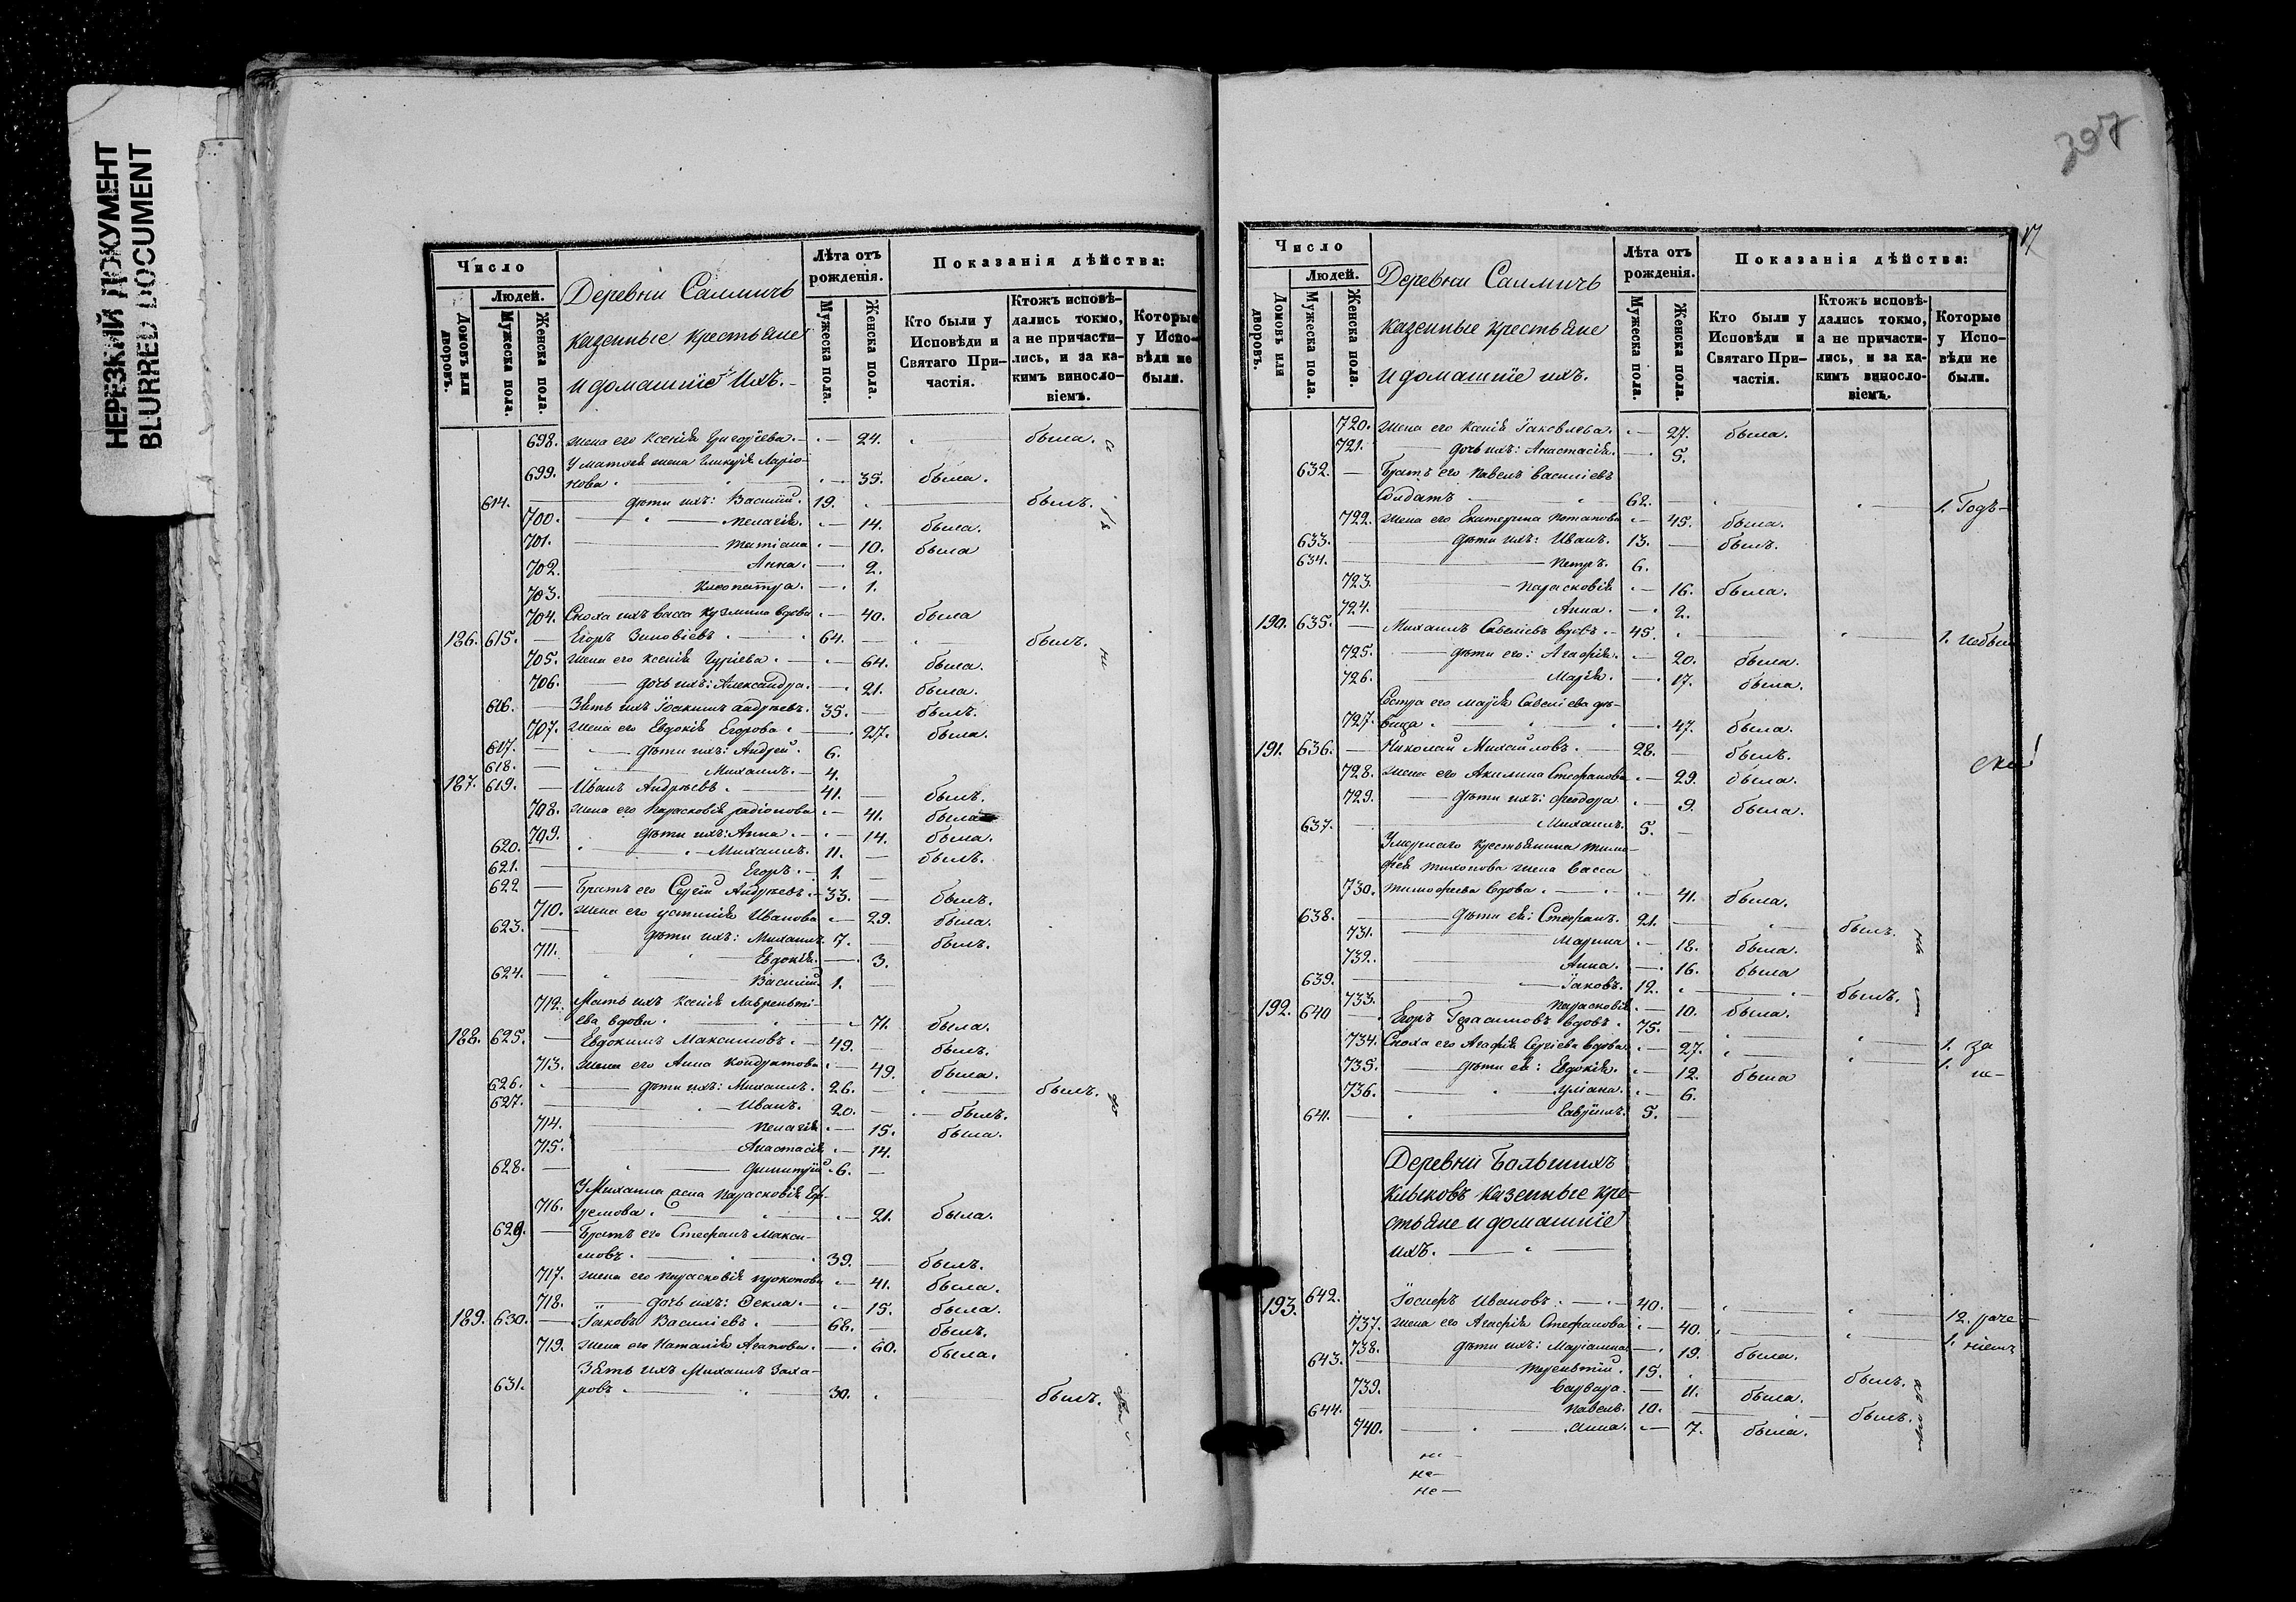 НЕРЕЗКИЙ ДОКУМЕНТ
BLURRED DOCUMENT
Число
Людей.
Домовъ или дворовъ.
Мужеска пола.
Женска пола.
Деревни Салмичъ
казенные крестьяне
и домашніе ихъ.
Лѣта отъ рожденія.
Мужеска пола.
Женска пола.
Показанія дѣйства:
Кто были у Исповѣди и Святаго Причастія.
Ктожъ исповѣдались токмо, а не причастились, и за какимъ винословіемъ.
Которые у Исповѣди не были.
698. жена его Ксенія Григоріева. 24. была.
У матѳея жена Гликерія Ларіо-
699. нова. 35. была.
614. дѣти ихъ: Василій. 19. былъ.
700. Пелагія. 14. была.
701. Татіана 10. была
702. Анна. 2.
703. Клеопатра. 1.
704. Сноха ихъ Васса Кузмина вдова 40. была
186. 615. Егоръ Зиновіевъ. 64. былъ.
705. жена его Ксенія Гуріева. 64. была.
706. дочь ихъ: Александра. 21. была.
616. Зять ихъ Іоакимъ Андреевъ. 35. былъ.
707. жена его Евдокія Егорова. 27. была.
617. дѣти ихъ: Андрей. 6.
618. Михаилъ. 4.
187. 619. Иванъ Андреевъ. 41. былъ.
708. жена его Парасковія Радіонова 41. была
709. дѣти ихъ: Анна. 14. была.
620. Михаилъ. 11. былъ.
621. Егоръ. 1.
622 Братъ его Сергій Андреевъ. 33. былъ.
710. жена его Устинія Иванова 29. была.
623. дѣти ихъ: Михаилъ 7. былъ.
711. Евдокія. 3.
624. Василій 1.
712. Мать ихъ Ксенія Лавренті-
ева вдова. 71. была.
188. 625. Евдокимъ Максимовъ. 49. былъ.
713. жена его Анна Кондратова 49. была.
626. дѣти ихъ: Михаилъ. 26. былъ.
627. Иванъ. 20. былъ.
714. Пелагія 15. была.
715. Анастасія 14.
628. Димитрій 6.
У Михаила жена Парасковія Еф-
716. ремова. 21. была.
629. Братъ его Стефанъ Макси-
мовъ. 39. былъ.
717. жена его Парасковія Прокопова 41. была.
718. дочь ихъ: Ѳекла. 15. была.
189. 630. Іаковъ Василіевъ. 68. былъ.
719. жена его Наталія Агапова. 60. была.
Зять ихъ Михаилъ Заха-
631. ровъ. 30. былъ.
397
17
Число
Людей.
Домовъ или дворовъ.
Мужеска пола.
Женска пола.
Деревни Салмичъ
казенные крестьяне
и домашніе ихъ.
Лѣта отъ рожденія.
Мужеска пола.
Женска пола.
Показанія дѣйства:
Кто были у Исповѣди и Святаго Причастія.
Ктожъ исповѣдались токмо, а не причастились, и за какимъ винословіемъ.
Которые у Исповѣди не были.
720. жена его Ксенія Іаковлева. 27. была.
721. дочь ихъ: Анастасія. 5.
632. Братъ его Павелъ Василіевъ
Солдатъ 62. 1. Годъ
722. жена его Екатерина Потапова 45. была.
633. дѣти ихъ: Иванъ. 13. былъ.
634. Петръ. 6.
723. Парасковія 16. была.
724. Анна. 2.
190. 635. Михаилъ Савеліевъ вдовъ. 45. 1. небыл
725. дѣти его: Агафія. 20. была.
726. Марія. 17. была.
Сестра его Марія Савеліева дѣ-
727. вица. 47. была.
191. 636. Николай Михайловъ. 28. былъ.
728. жена его Акилина Стефанова 29. была.
729. дѣти ихъ: Ѳеодора 9. была.
637. Михаилъ. 5.
Умершаго крестьянина Тимо-
фея Тихонова жена Васса
730. Тимофеева вдова. 41. была.
638. дѣти ея: Стефанъ. 21. былъ.
731. Марина 18. была.
732. Анна. 16. была
639. Іаковъ. 12. былъ.
733. Парасковія 10. была.
192. 640 Егоръ Герасимовъ вдовъ. 75. 1. за
734. Сноха его Агафія Сергіева вдова 27. 1.
735. дѣти ея: Евдокія. 12. была
736. Уліана. 6.
641. Гавріилъ. 5.
Деревни Большихъ
Клыковъ казенные кре-
стьяне и домашніе
ихъ.
193. 642. Іосифъ Ивановъ. 40. 12.
737. жена его Агафія Стефанова 40. 1.
738. дѣти ихъ: Маріамна 19. была.
643. Терентій. 15. былъ.
739. Варвара. 11. была.
644. Павелъ. 10. былъ.
740. Анна. 7. была.
не
не
не